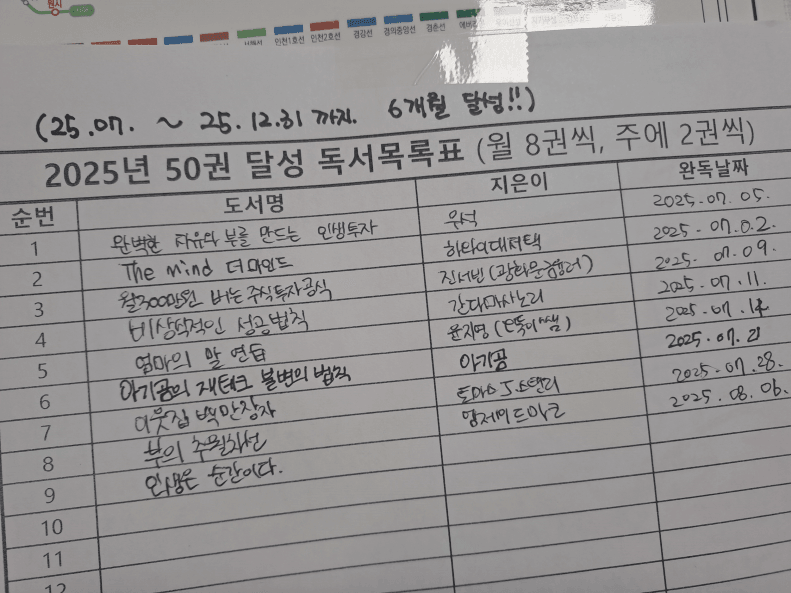 원시
서해선 인천1호선 인천2호선 경강선 경의중앙선 경춘선
(25.07. ~ 25.12.31 까지. 6개월 달성!!)
2025년 50권 달성 독서목록표 (월 8권씩, 주에 2권씩)
순번 도서명 지은이 완독날짜
1 완벽한 자유와 부를 만드는 인생투자 우석 2025.07.05.
2 The mind 더마인드 하와이대저택 2025.07.02.
3 월300만원 버는 주식투자공식 진서빈(광화문금융러) 2025.07.09.
4 비상식적인 성공법칙 간다마사노리 2025.07.11.
5 엄마의 말 연습 윤지영 2025.07.14
6 아기곰의 재테크 불변의 법칙 아기곰 2025.07.21
7 이웃집 백만장자 토마스 J 스탠리 2025.07.28.
8 부의 추월차선 엠제이드마코 2025.08.06.
9 인생은 순간이다.
10
11
12